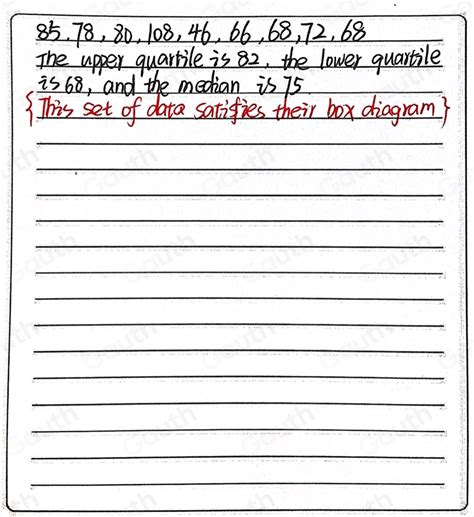 85, 78, 80, 108, 46, 66, 68, 72, 68
The upper quartile is 82, the lower quartile
is 68, and the median is 75.
{This set of data satisfies their box diagram}